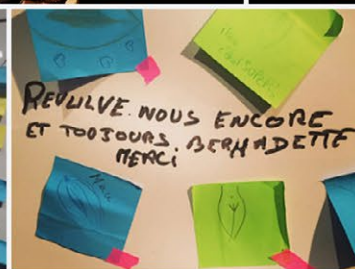 REVULVE. NOUS ENCORE
ET TOUJOURS. BERNADETTE
MERCI
Merci